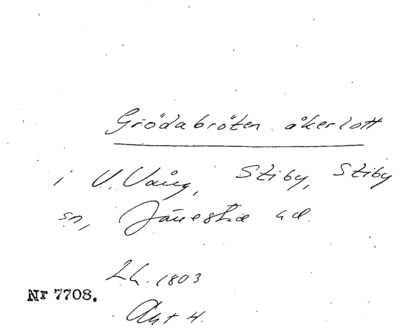 Grödabröten åkerlott
i V. Vång, Stiby, Stiby
sn, Järrestad hd.
L.L. 1803
Nr 7708.
Akt 4.